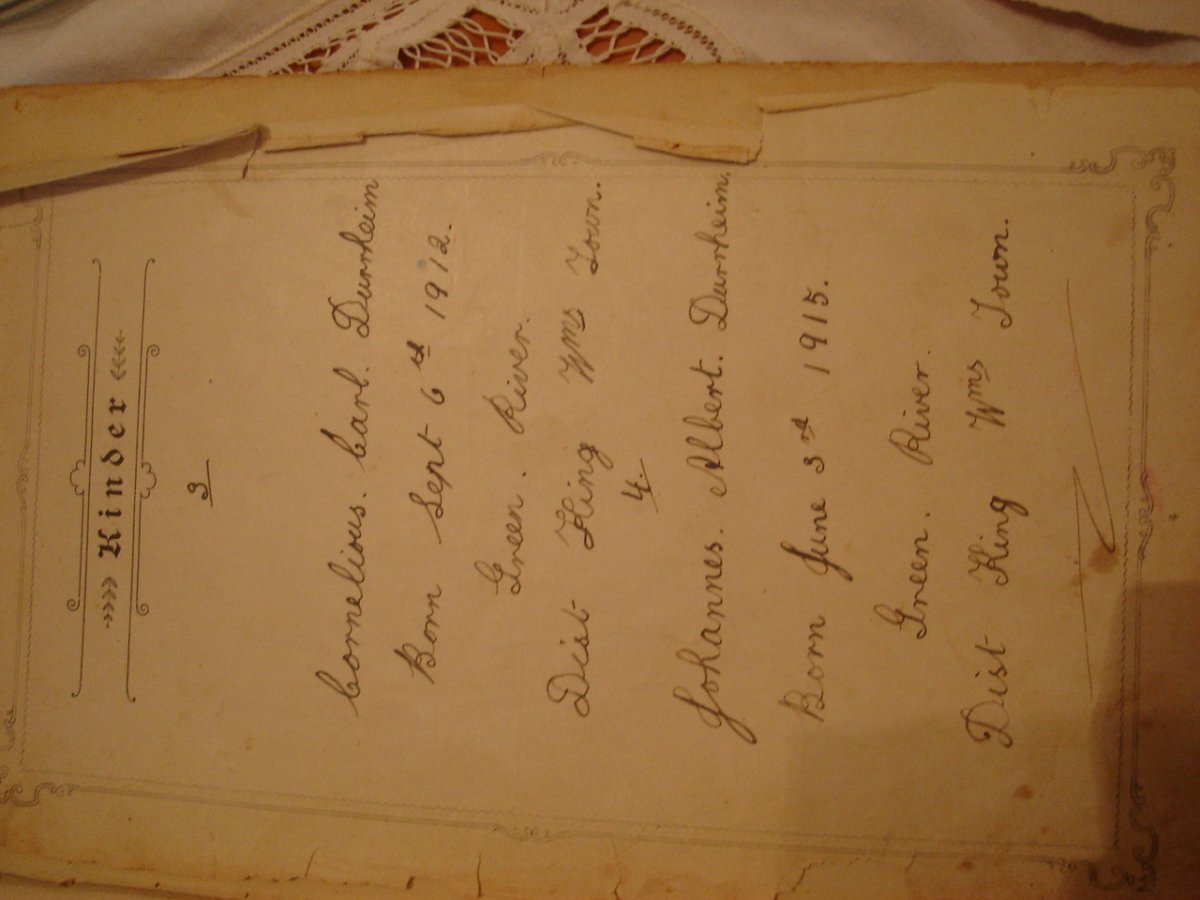 Kinder
3
Cornelious. Carl. Durrheim
Born Sept 6th 1912.
Green. River.
Dist King Wms Town.
4.
Johannes. Albert. Durrheim.
Born June 3rd 1915.
Green. River.
Dist King Wms Town.